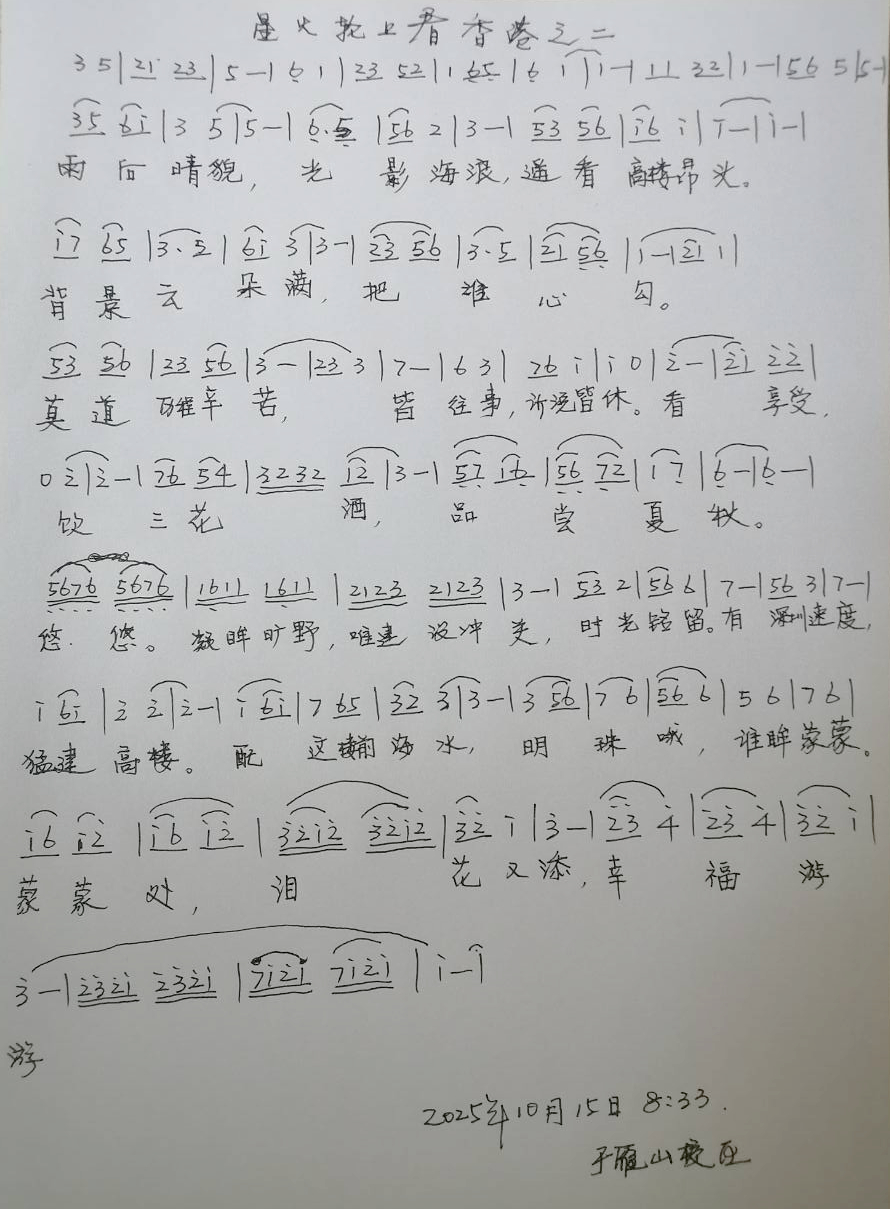 星火轮上看香港之二
3 5 | 21 23 | 5 - | 6 1 | 23 52 | 1 65 | 6 i | i - | 11 22 | 1 - | 56 5 | 5 - |
35 6i | 3 5 | 5 - | 6.5 | 56 2 | 3 - | 53 56 | i6 i | i - | i - |
雨后晴貌，光影海浪，遥看高楼昂头。
i7 65 | 3·5 | 6i 3 | 3 - | 23 56 | 3·5 | 21 56 | 1 - | 21 1 |
背景云朵满，把谁心勾。
53 56 | 23 56 | 3 - | 23 3 | 7 - | 6 3 | 76 i | i 0 | 2 - | 21 22 |
莫道万难辛苦，皆往事，所说皆休。看享受，
0 2 | 2 - | 76 54 | 3232 12 | 3 - | 57 16 | 56 72 | 1 7 | 6 - | 6 - |
饮三花酒，品尝夏秋。
5676 5676 | 1611 1611 | 2123 2123 | 3 - | 53 2 | 56 6 | 7 - | 56 3 | 7 - |
悠悠。凝眸旷野，唯建设冲关，时光铭留。有深圳速度，
i 6i | 2 2 | 2 - | i 6i | 7 65 | 32 3 | 3 - | 3 56 | 7 6 | 56 6 | 5 6 | 7 6 |
猛建高楼。配这楼前海水，明珠哦，谁眸蒙蒙。
i6 i2 | i6 i2 | 3212 3212 | 32 i | 3 - | 23 4 | 23 4 | 32 i |
蒙蒙处，泪花又添，幸福游
3 - | 2321 2321 | 7121 7121 | i - i
游
2025年10月15日 8:33.
于雁山校区